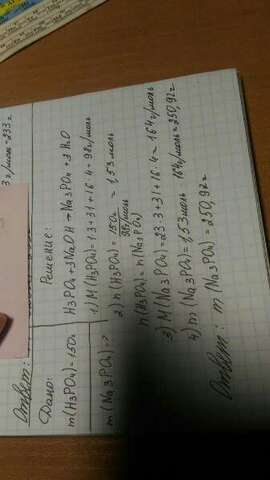 3 г/моль=233 г.
Ответ:
Дано:
m(H3PO4)=150г
m(Na3PO4)-?
Решение:
H3PO4+3NaOH→Na3PO4+3H2O
1) M(H3PO4)=1·3+31+16·4=98г/моль
2) n(H3PO4)=150г/98г/моль=1,53моль
n(H3PO4)=n(Na3PO4)
3) M(Na3PO4)=23·3+31+16·4=164г/моль
4) m(Na3PO4)=1,53моль·164г/моль=250,92г
Ответ: m(Na3PO4)=250,92г